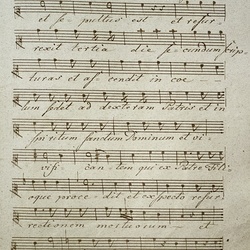 et se pultus est et resur
rexit tertia die secundum scrip
turas et as cendit in coe
lum sedet ad dexteram Patris et in
spiritum sanctum Dominum et vi
vifi can tem qui ex Patre Fili
oque proce dit et expecto resur
rectionem mortuorum et